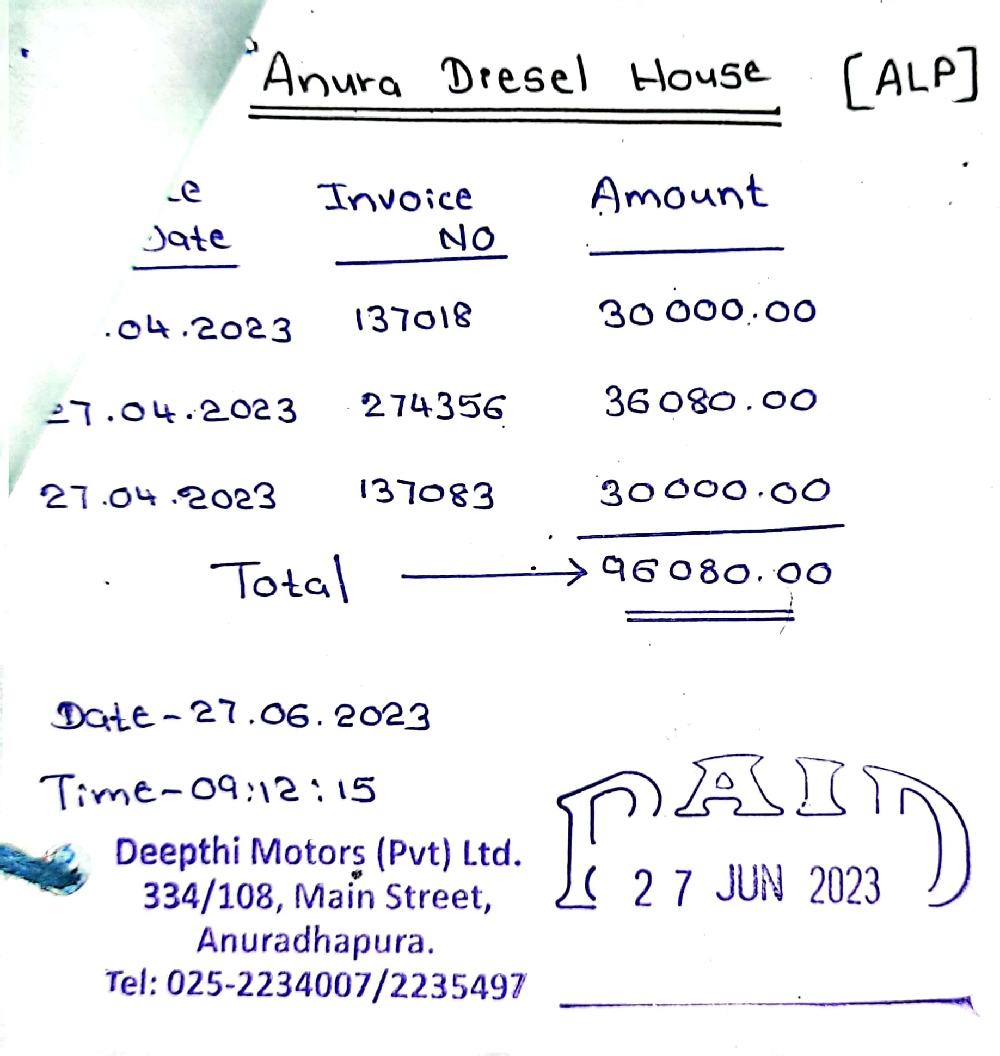 Anura Diesel House [ALP]
Invoice Amount
Date NO
.04.2023 137018 30 000.00
27.04.2023 274356 36 080.00
27.04.2023 137083 30 000.00
Total → 96 080.00
Date - 27.06.2023
Time - 09:12:15
PAID
27 JUN 2023
Deepthi Motors (Pvt) Ltd.
334/108, Main Street,
Anuradhapura.
Tel: 025-2234007/2235497